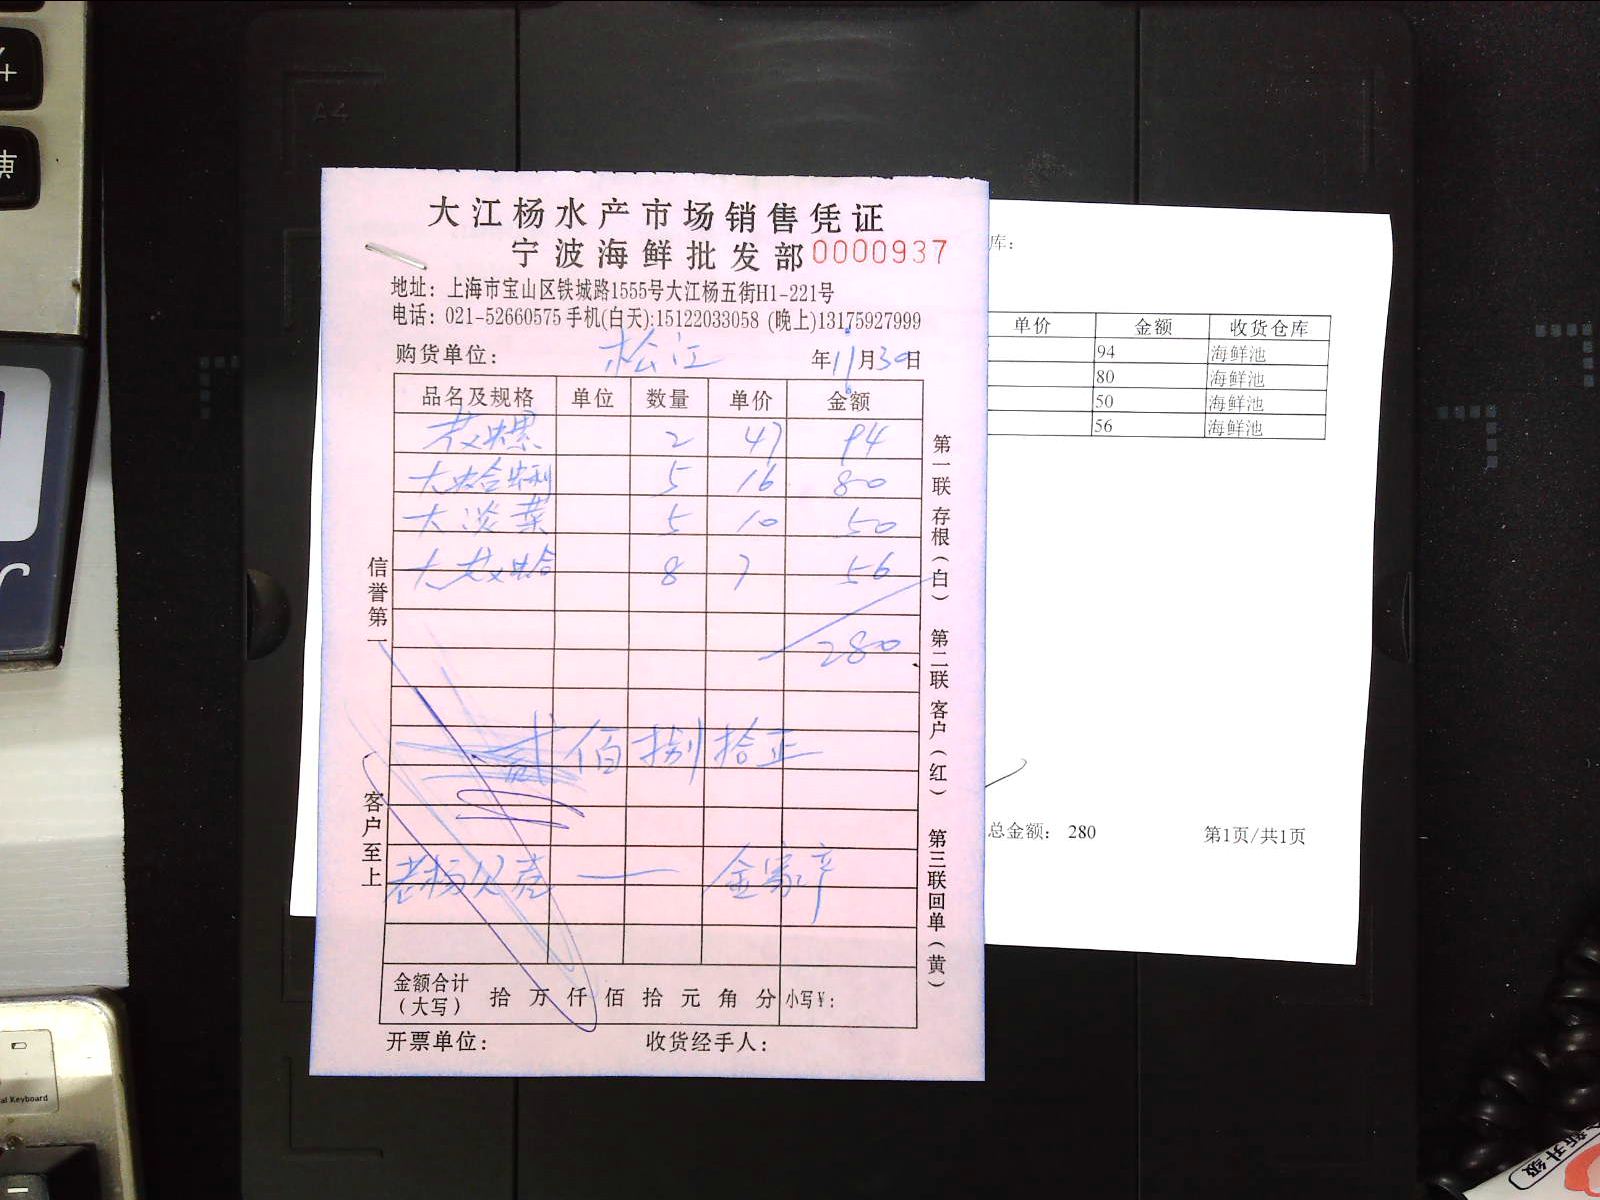 大江杨水产市场销售凭证
宁波海鲜批发部 0000937
地址：上海市宝山区铁城路1555号大江杨五街H1-221号
电话：021-52660575 手机(白天):15122033058 (晚上)13175927999
购货单位：松江 年11月30日
品名及规格 单位 数量 单价 金额
花螺 2 47 94
大蛤蜊 5 16 80
大淡菜 5 10 50
大花蛤 8 7 56
280
贰佰捌拾正
老杨 — 金家
金额合计（大写） 拾 万 仟 佰 拾 元 角 分 小写¥：
开票单位： 收货经手人：
信誉第一 客户至上
第一联 存根（白） 第二联 客户（红） 第三联 回单（黄）
库：
单价 金额 收货仓库
94 海鲜池
80 海鲜池
50 海鲜池
56 海鲜池
总金额： 280 第1页/共1页
A4
al Keyboard
新升级